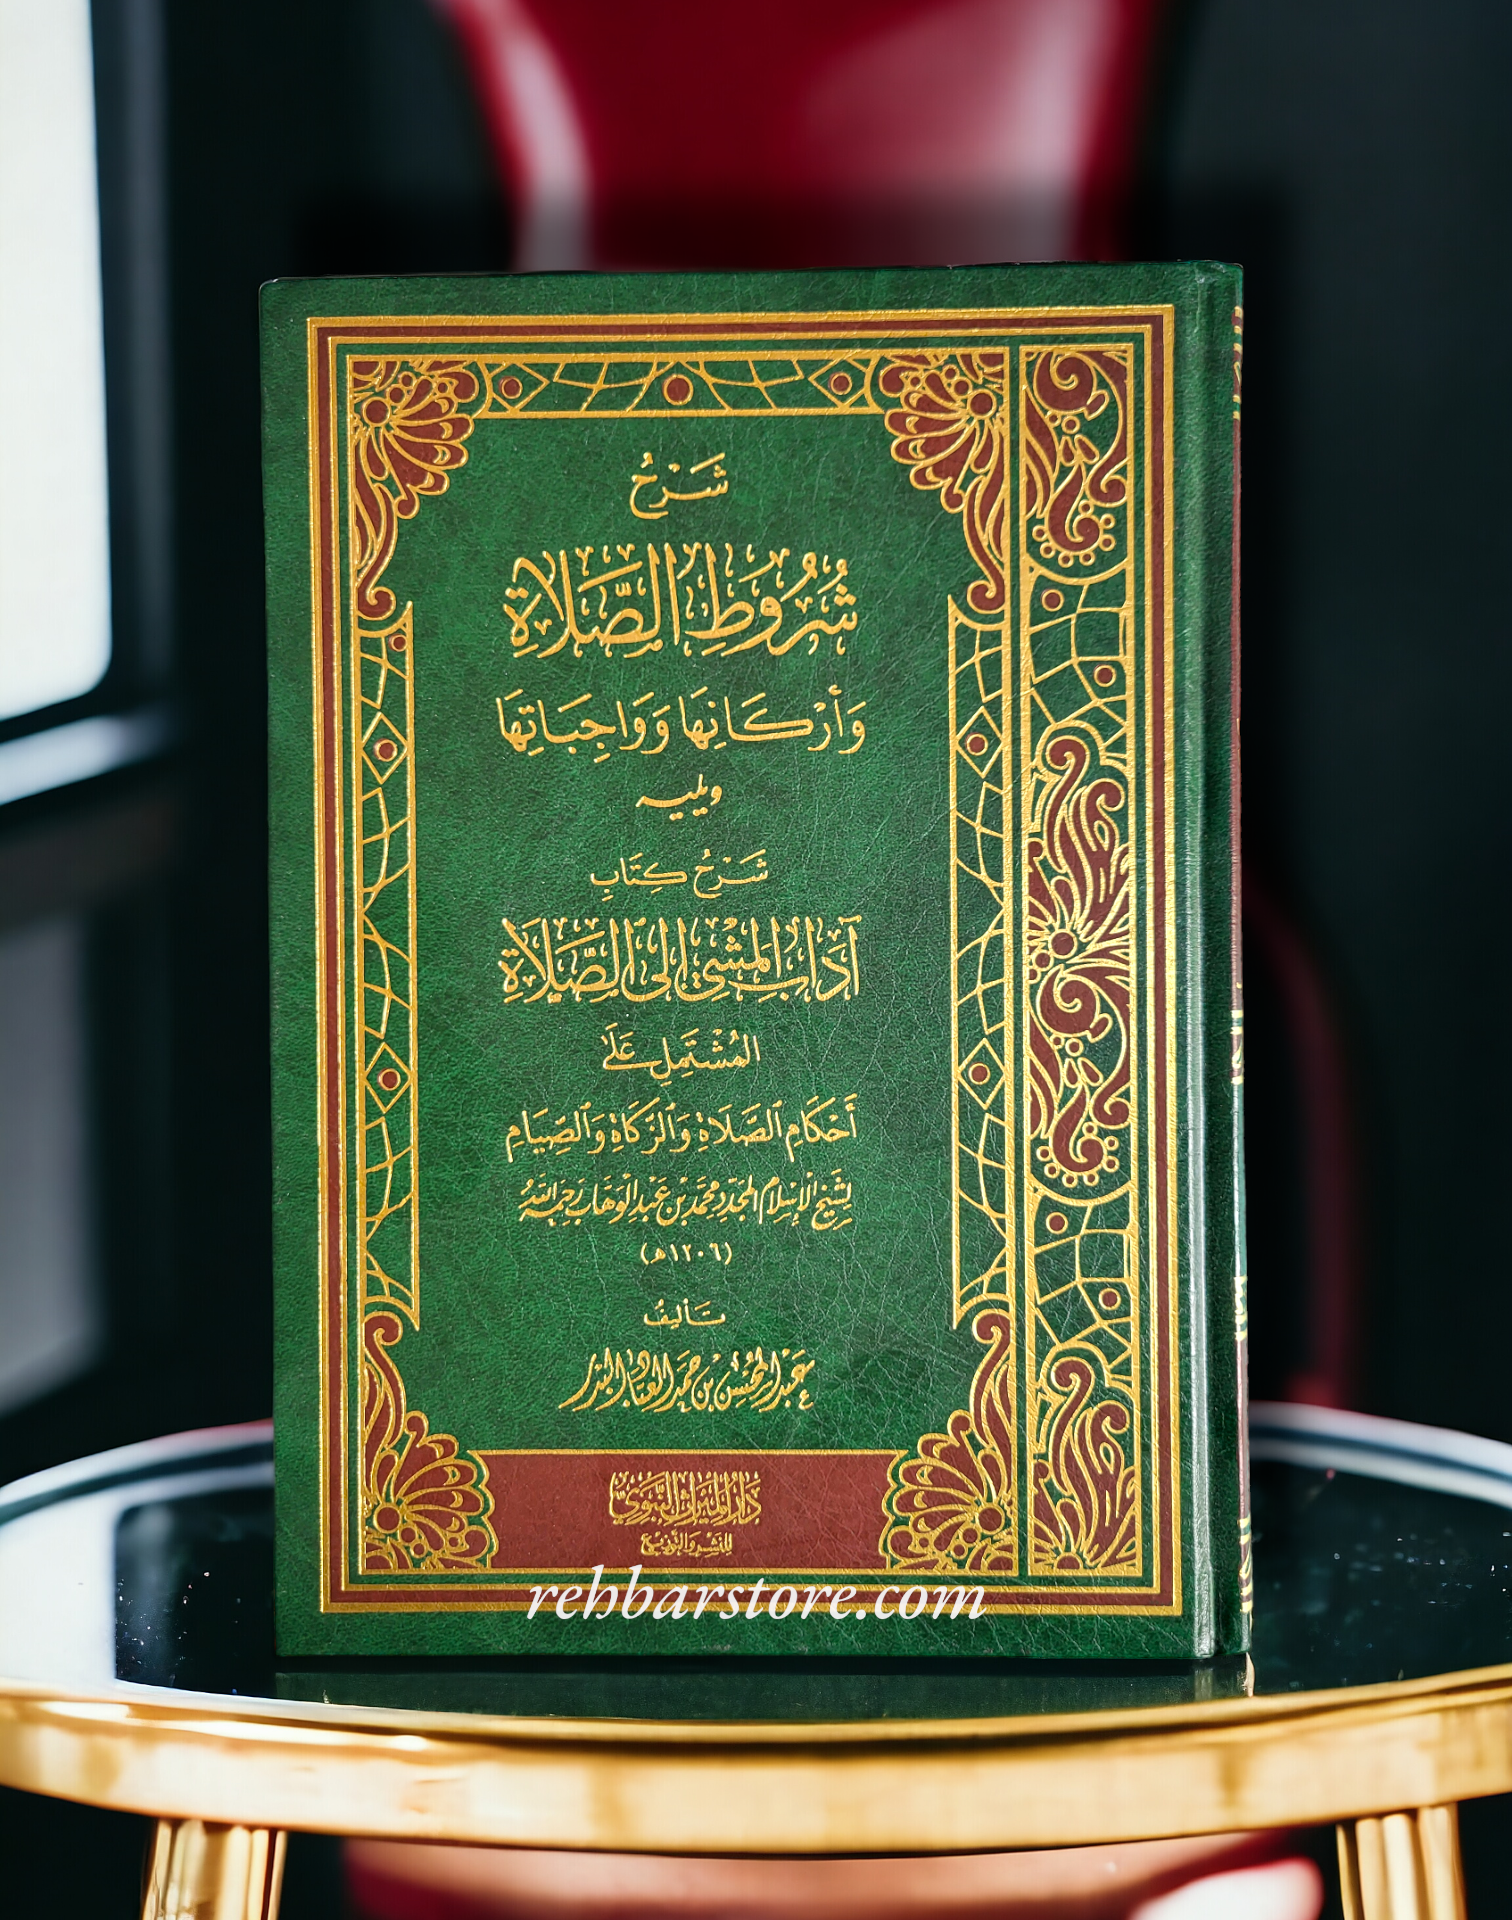 شَرْحُ
شُرُوطِ الصَّلَاةِ
وَأَرْكَانِهَا وَوَاجِبَاتِهَا
ويليه
شَرْحُ كِتَابِ
آدَابِ المَشْيِ إِلَى الصَّلَاةِ
المُشْتَمِلِ عَلَى
أَحْكَامِ الصَّلَاةِ وَالزَّكَاةِ وَالصِّيَامِ
لِشَيْخِ الْإِسْلَامِ المُجَدِّدِ مُحَمَّدِ بْنِ عَبْدِ الْوَهَّابِ رَحِمَهُ اللَّهُ
(١٢٠٦هـ)
تَأْلِيفُ
عَبْدِ الْمُحْسِنِ بْنِ حَمَدِ الْعَبَّادِ الْبَدْرِ
دَارُ الْمِيرَاثِ النَّبَوِيِّ
لِلنَّشْرِ وَالتَّوْزِيعِ
rehbarstore.com